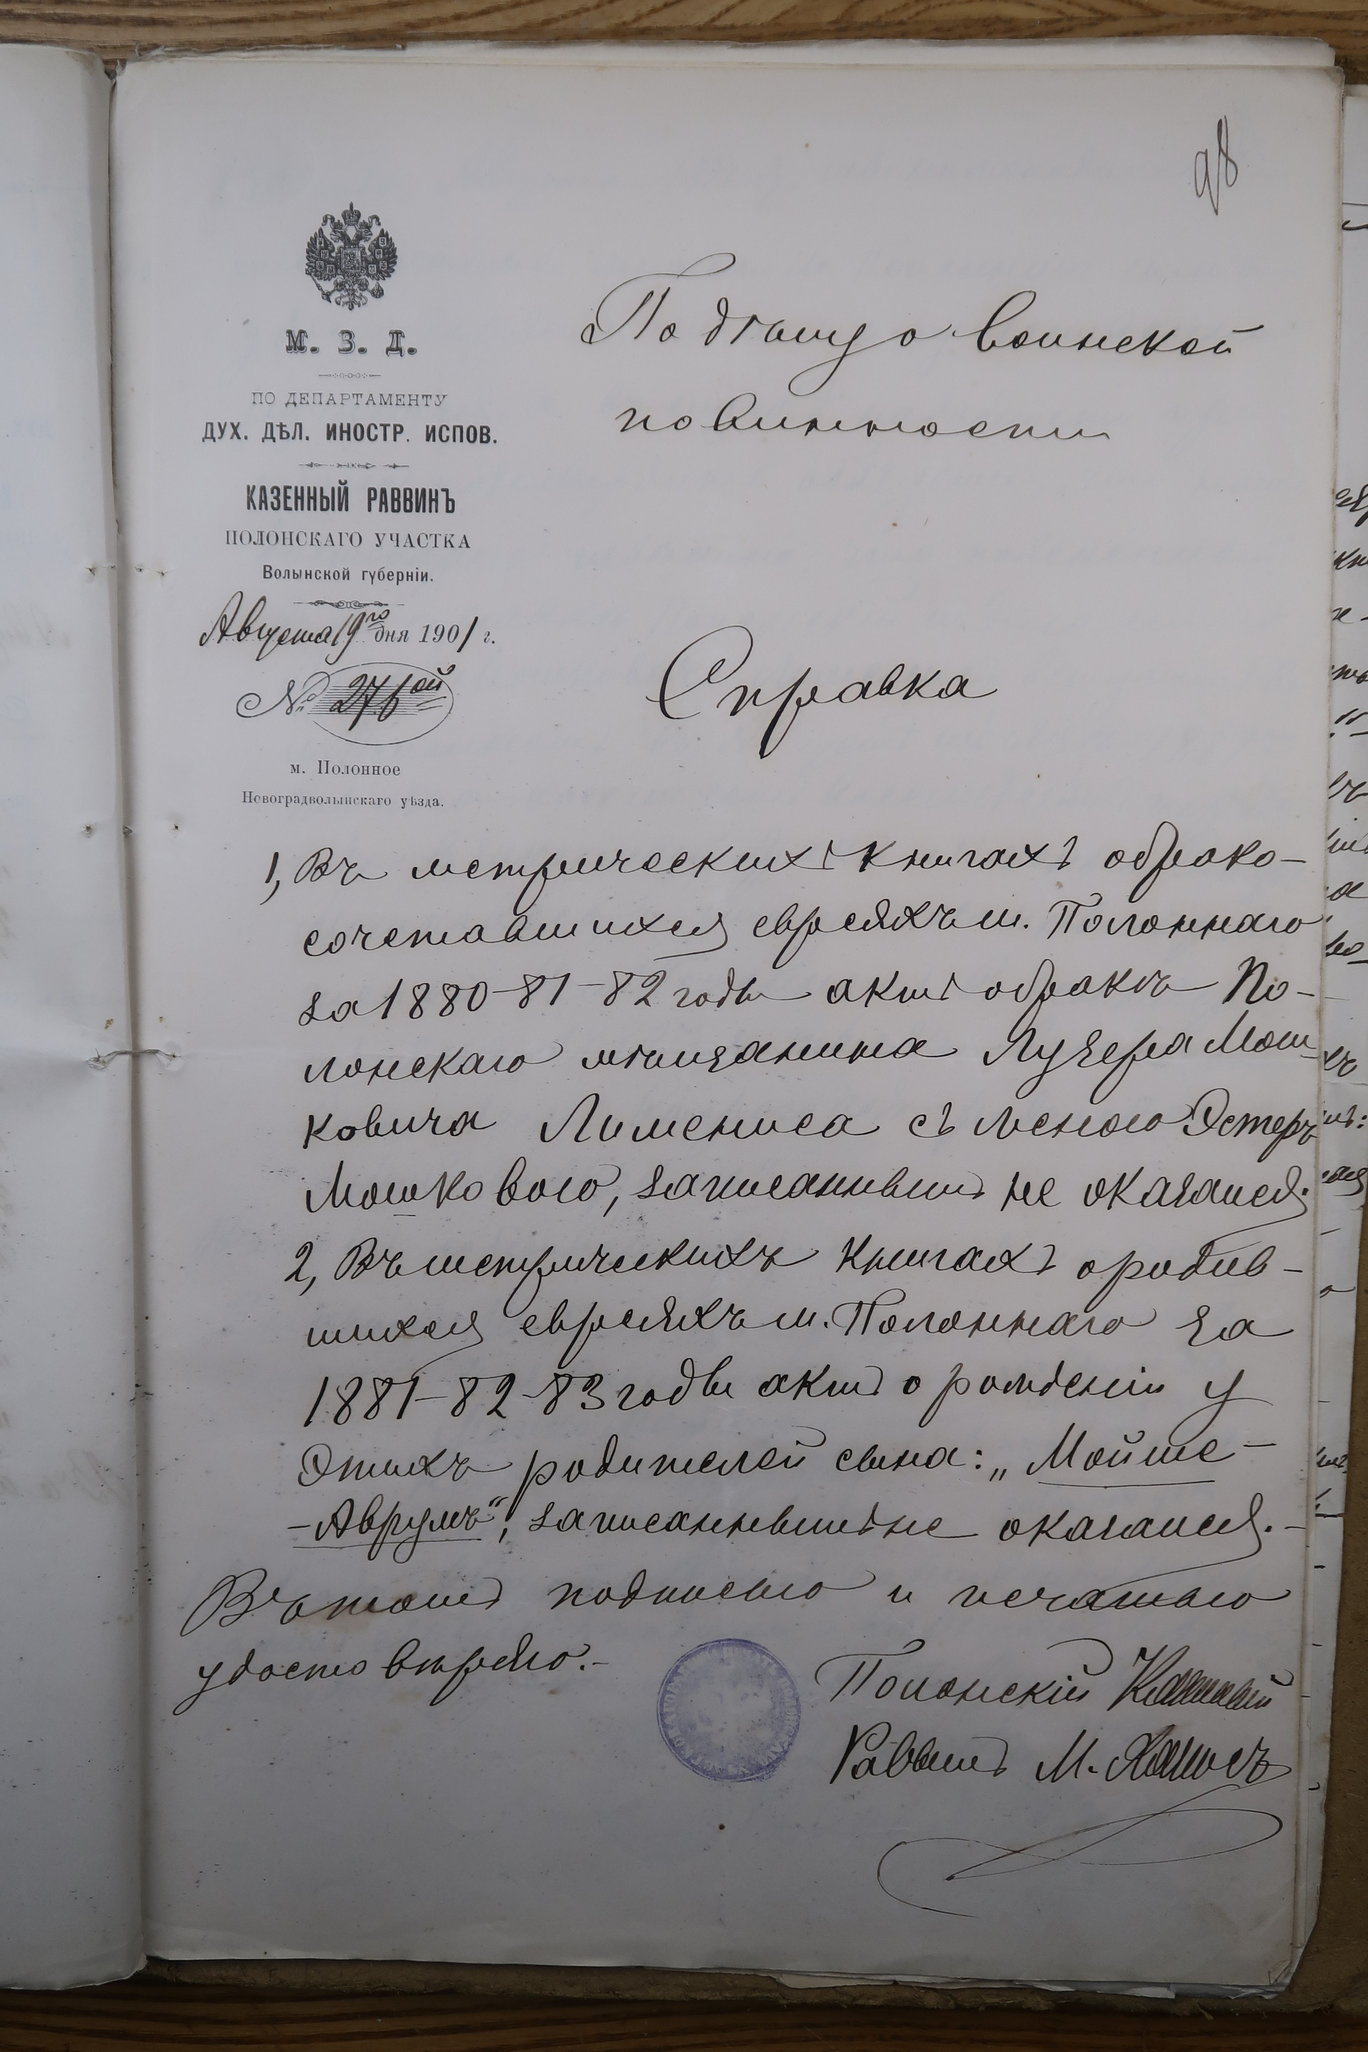 98
М. З. Д.
ПО ДЕПАРТАМЕНТУ
ДУХ. ДѢЛ. ИНОСТР. ИСПОВ.
КАЗЕННЫЙ РАВВИНЪ
ПОЛОНСКАГО УЧАСТКА
Волынской губерніи.
Августа 19го дня 1901 г.
№ 276ой
м. Полонное
Новоградволынскаго уѣзда.
По дѣлу о воинской
повинности
Справка
1, Въ метрическихъ книгахъ о брако-
сочетавшихся евреяхъ м. Полоннаго
за 1880-81-82 годы актъ о бракѣ По-
лонскаго мѣщанина Лузера Мош-
ковича с женою Эстеръ
Мошковою, записаннымъ не оказался.
2, Въ метрическихъ книгахъ о родив-
шихся евреяхъ м. Полоннаго за
1881-82-83 годы актъ о рожденіи у
этихъ родителей сына: „Мойше-
-Аврумъ", записаннымъ не оказался.-
Въ томъ подписью и печатью
удостовѣряю.-
Полонскій Казенный
Раввинъ М.